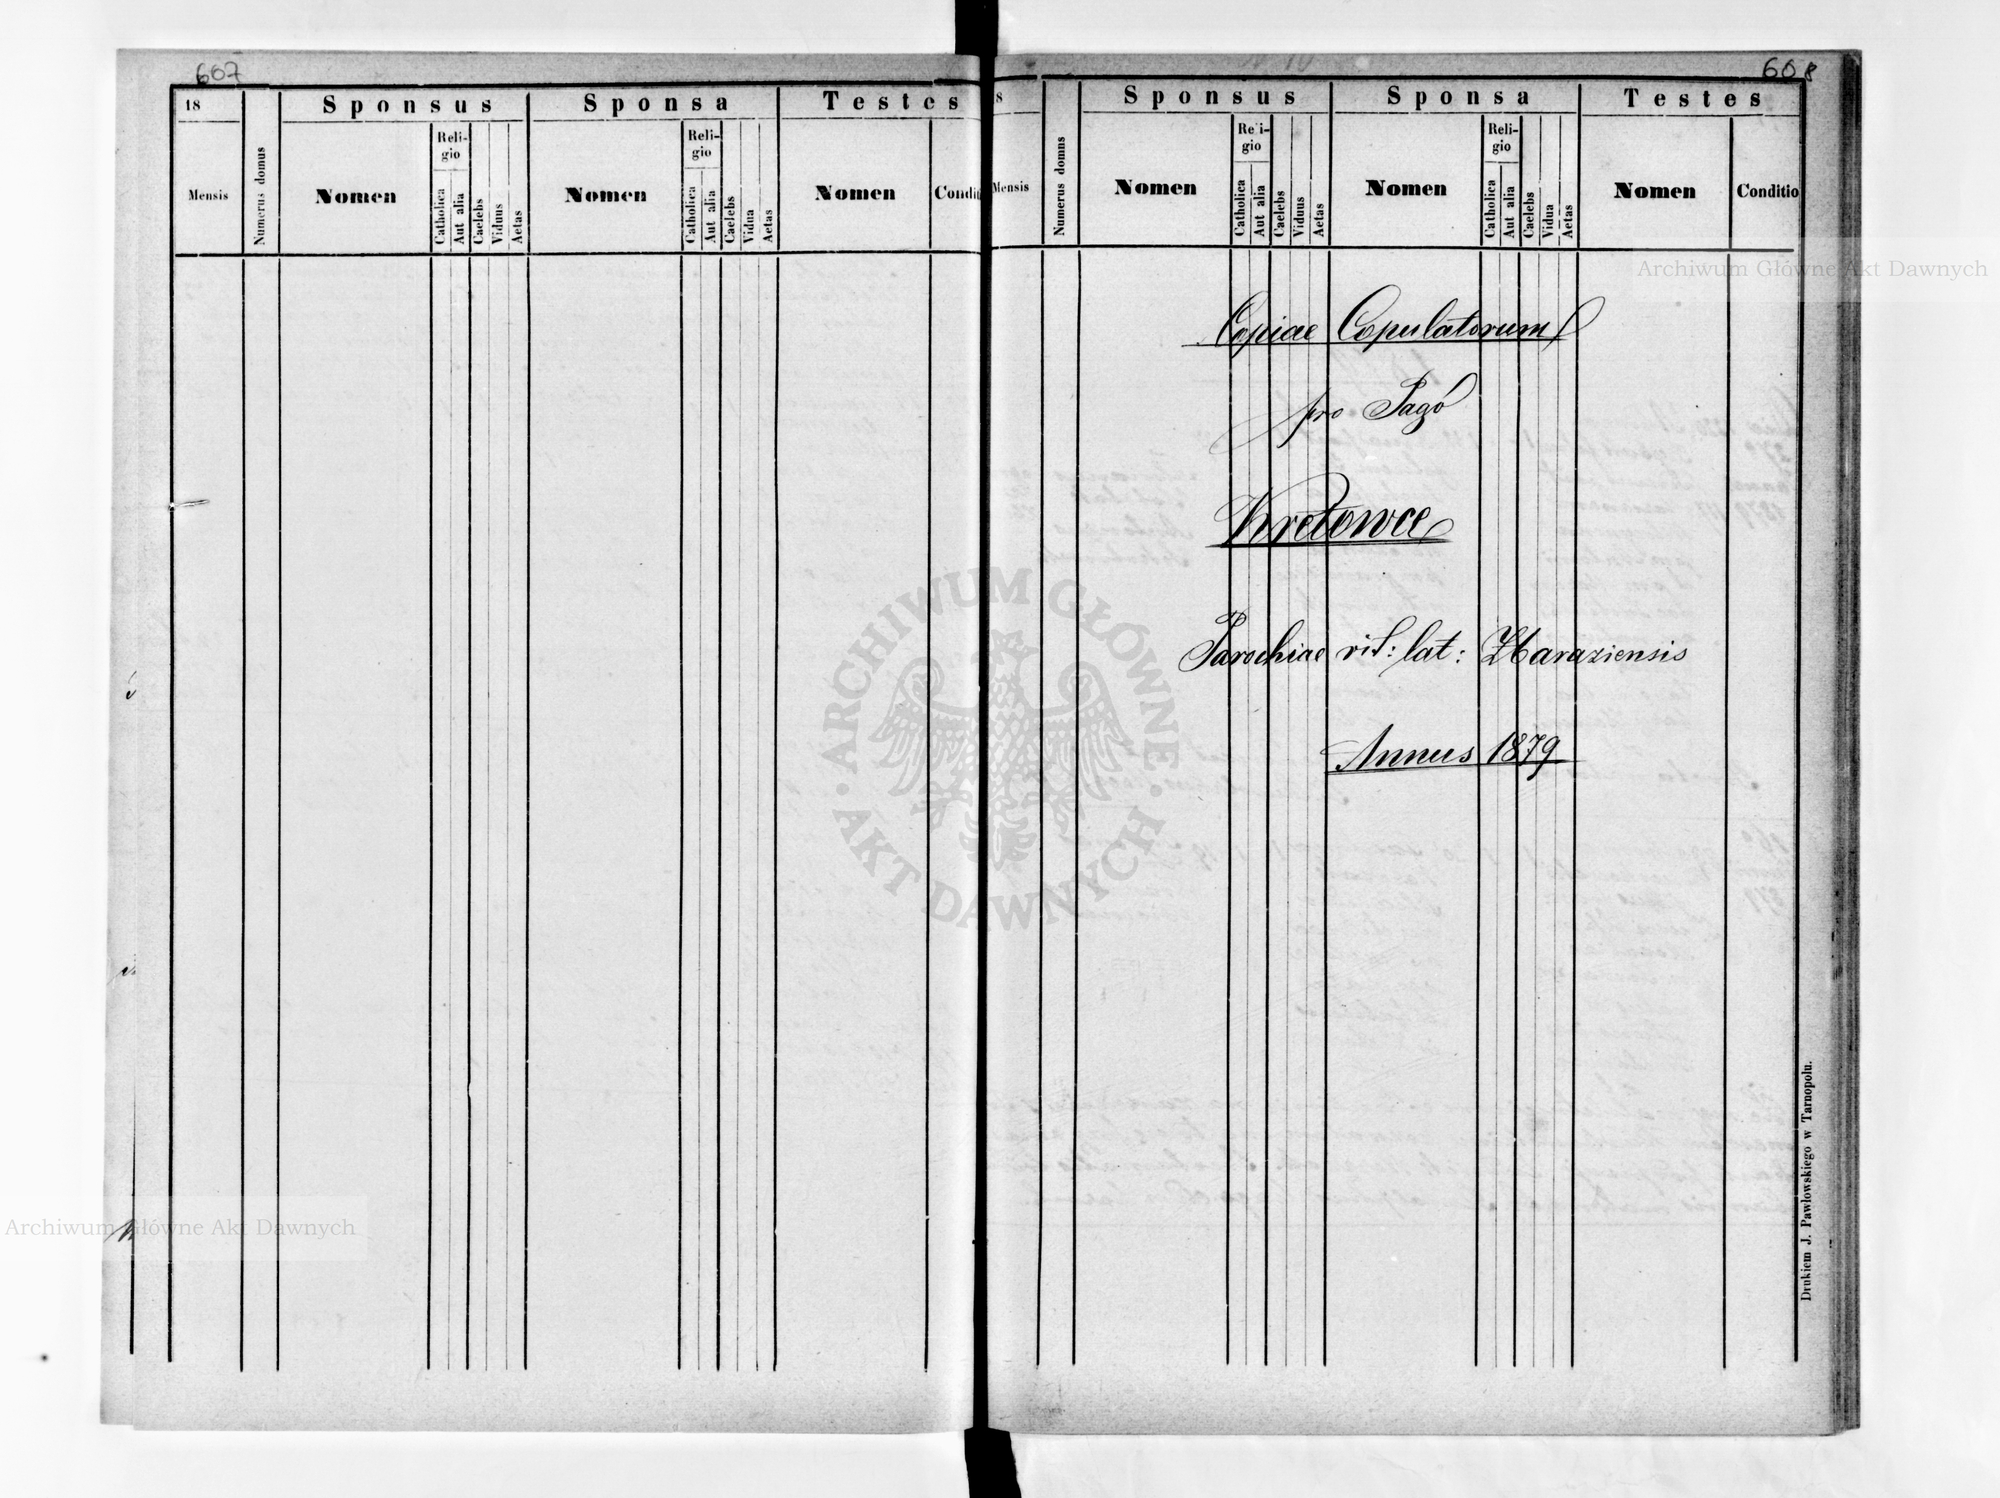 607
18
Sponsus
Sponsa
Testes
Mensis
Numerus domus
Nomen
Religio
Catholica
Aut alia
Caelebs
Viduus
Aetas
Nomen
Religio
Catholica
Aut alia
Caelebs
Vidua
Aetas
Nomen
608
8
Sponsus
Sponsa
Testes
Mensis
Numerus domus
Nomen
Religio
Catholica
Aut alia
Caelebs
Viduus
Aetas
Nomen
Religio
Catholica
Aut alia
Caelebs
Vidua
Aetas
Nomen
Conditio
Copiae Copulatorum
pro Pago
Kretowce
Parochiae rit: lat: Zbaraziensis
Annus 1879
Drukiem J. Pawłowskiego w Tarnopolu.
Archiwum Główne Akt Dawnych
Archiwum Główne Akt Dawnych
ARCHIWUM GŁÓWNE
AKT DAWNYCH